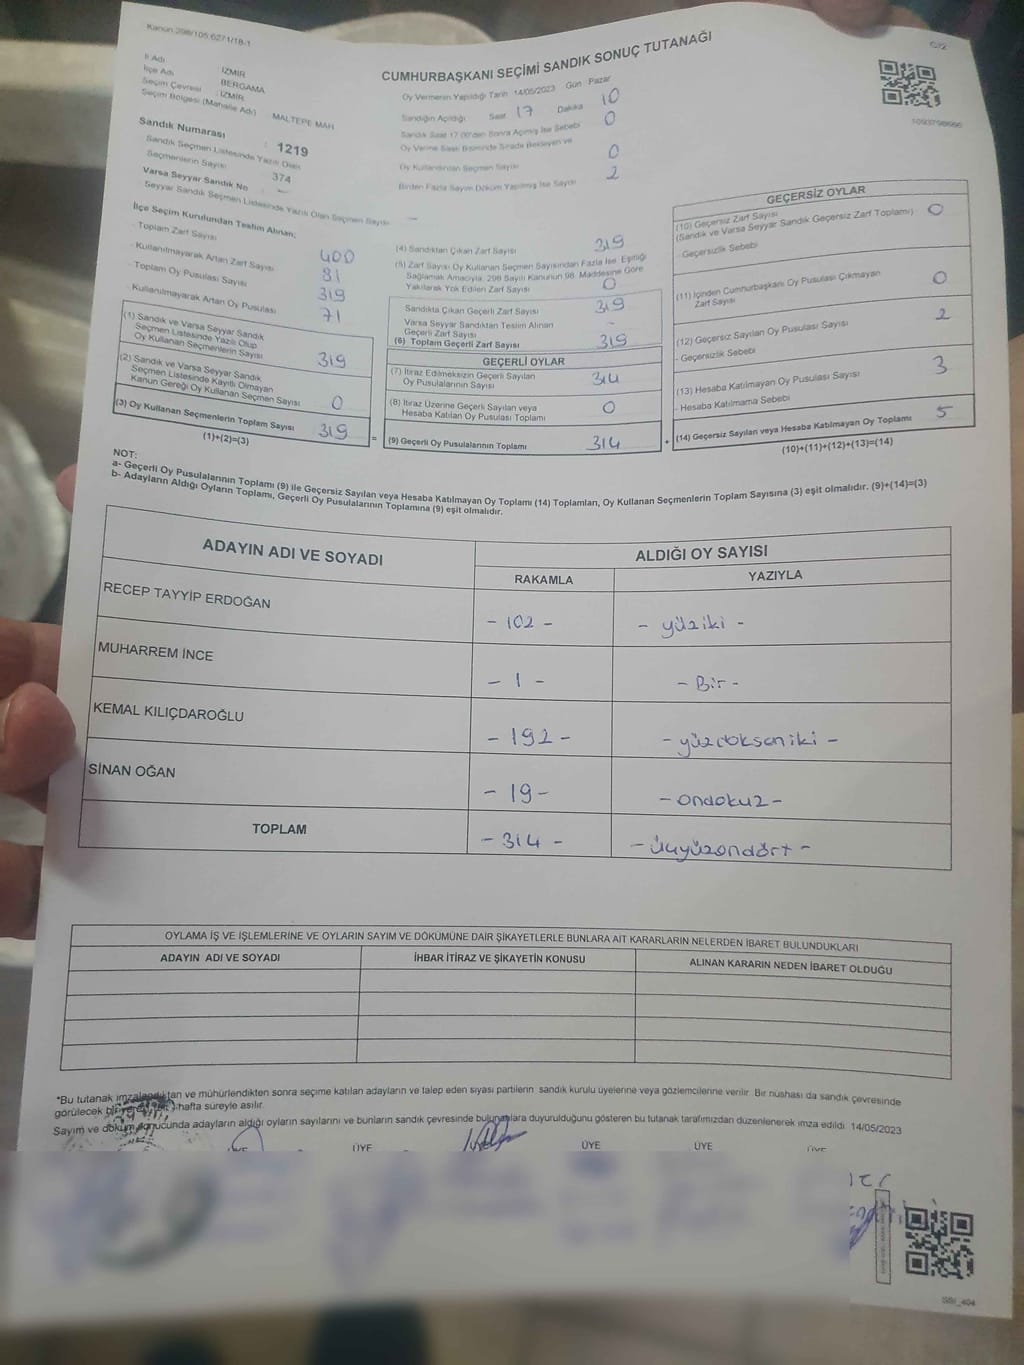 Kanun 298/105,6271/18-1
C/2
CUMHURBAŞKANI SEÇİMİ SANDIK SONUÇ TUTANAĞI
İl Adı : İZMİR
İlçe Adı : BERGAMA
Seçim Çevresi : İZMİR
Seçim Bölgesi (Mahalle Adı) MALTEPE MAH
Sandık Numarası : 1219
Sandık Seçmen Listesinde Yazılı Olan
Seçmenlerin Sayısı 374
Varsa Seyyar Sandık No —
Seyyar Sandık Seçmen Listesinde Yazılı Olan Seçmen Sayısı —
Oy Vermenin Yapıldığı Tarih 14/05/2023 Gün Pazar
Sandığın Açıldığı Saat 17 Dakika 10
Sandık Saat 17.00'den Sonra Açılmış İse Sebebi 0
Oy Verme Saati Bitiminde Sırada Bekleyen ve
Oy Kullandırılan Seçmen Sayısı 0
Birden Fazla Sayım Döküm Yapılmış İse Sayısı 2
İlçe Seçim Kurulundan Teslim Alınan;
- Toplam Zarf Sayısı 400
- Kullanılmayarak Artan Zarf Sayısı 81
- Toplam Oy Pusulası Sayısı 319
- Kullanılmayarak Artan Oy Pusulası 71
(1) Sandık ve Varsa Seyyar Sandık
Seçmen Listesinde Yazılı Olup
Oy Kullanan Seçmenlerin Sayısı 319
(2) Sandık ve Varsa Seyyar Sandık
Seçmen Listesinde Kayıtlı Olmayan
Kanun Gereği Oy Kullanan Seçmen Sayısı 0
(3) Oy Kullanan Seçmenlerin Toplam Sayısı 319
(1)+(2)=(3)
(4) Sandıktan Çıkan Zarf Sayısı 319
(5) Zarf Sayısı Oy Kullanan Seçmen Sayısından Fazla İse, Eşitliği
Sağlamak Amacıyla, 298 Sayılı Kanunun 98. Maddesine Göre
Yakılarak Yok Edilen Zarf Sayısı 0
Sandıkta Çıkan Geçerli Zarf Sayısı 319
Varsa Seyyar Sandıktan Teslim Alınan
Geçerli Zarf Sayısı -
(6) Toplam Geçerli Zarf Sayısı 319
GEÇERLİ OYLAR
(7) İtiraz Edilmeksizin Geçerli Sayılan
Oy Pusulalarının Sayısı 314
(8) İtiraz Üzerine Geçerli Sayılan veya
Hesaba Katılan Oy Pusulası Toplamı 0
= (9) Geçerli Oy Pusulalarının Toplamı 314
GEÇERSİZ OYLAR
(10) Geçersiz Zarf Sayısı
(Sandık ve Varsa Seyyar Sandık Geçersiz Zarf Toplamı) 0
- Geçersizlik Sebebi
(11) İçinden Cumhurbaşkanı Oy Pusulası Çıkmayan
Zarf Sayısı 0
(12) Geçersiz Sayılan Oy Pusulası Sayısı 2
- Geçersizlik Sebebi
(13) Hesaba Katılmayan Oy Pusulası Sayısı 3
- Hesaba Katılmama Sebebi
+ (14) Geçersiz Sayılan veya Hesaba Katılmayan Oy Toplamı 5
(10)+(11)+(12)+(13)=(14)
NOT:
a- Geçerli Oy Pusulalarının Toplamı (9) ile Geçersiz Sayılan veya Hesaba Katılmayan Oy Toplamı (14) Toplamları, Oy Kullanan Seçmenlerin Toplam Sayısına (3) eşit olmalıdır. (9)+(14)=(3)
b- Adayların Aldığı Oyların Toplamı, Geçerli Oy Pusulalarının Toplamına (9) eşit olmalıdır.
ADAYIN ADI VE SOYADI ALDIĞI OY SAYISI
RAKAMLA YAZIYLA
RECEP TAYYİP ERDOĞAN - 102 - - yüziki -
MUHARREM İNCE - 1 - - Bir -
KEMAL KILIÇDAROĞLU - 192 - - yüzdoksaniki -
SİNAN OĞAN - 19 - - ondokuz -
TOPLAM - 314 - - üçyüzondört -
OYLAMA İŞ VE İŞLEMLERİNE VE OYLARIN SAYIM VE DÖKÜMÜNE DAİR ŞİKAYETLERLE BUNLARA AİT KARARLARIN NELERDEN İBARET BULUNDUKLARI
ADAYIN ADI VE SOYADI İHBAR İTİRAZ VE ŞİKAYETİN KONUSU ALINAN KARARIN NEDEN İBARET OLDUĞU
*Bu tutanak imzalandıktan ve mühürlendikten sonra seçime katılan adayların ve talep eden siyasi partilerin sandık kurulu üyelerine veya gözlemcilerine verilir. Bir nüshası da sandık çevresinde
görülecek bir yere hafta süreyle asılır.
Sayım ve döküm sonucunda adayların aldığı oyların sayılarını ve bunların sandık çevresinde bulunanlara duyurulduğunu gösteren bu tutanak tarafımızdan düzenlenerek imza edildi. 14/05/2023
ÜYE ÜYE ÜYE ÜYE
SSI_404